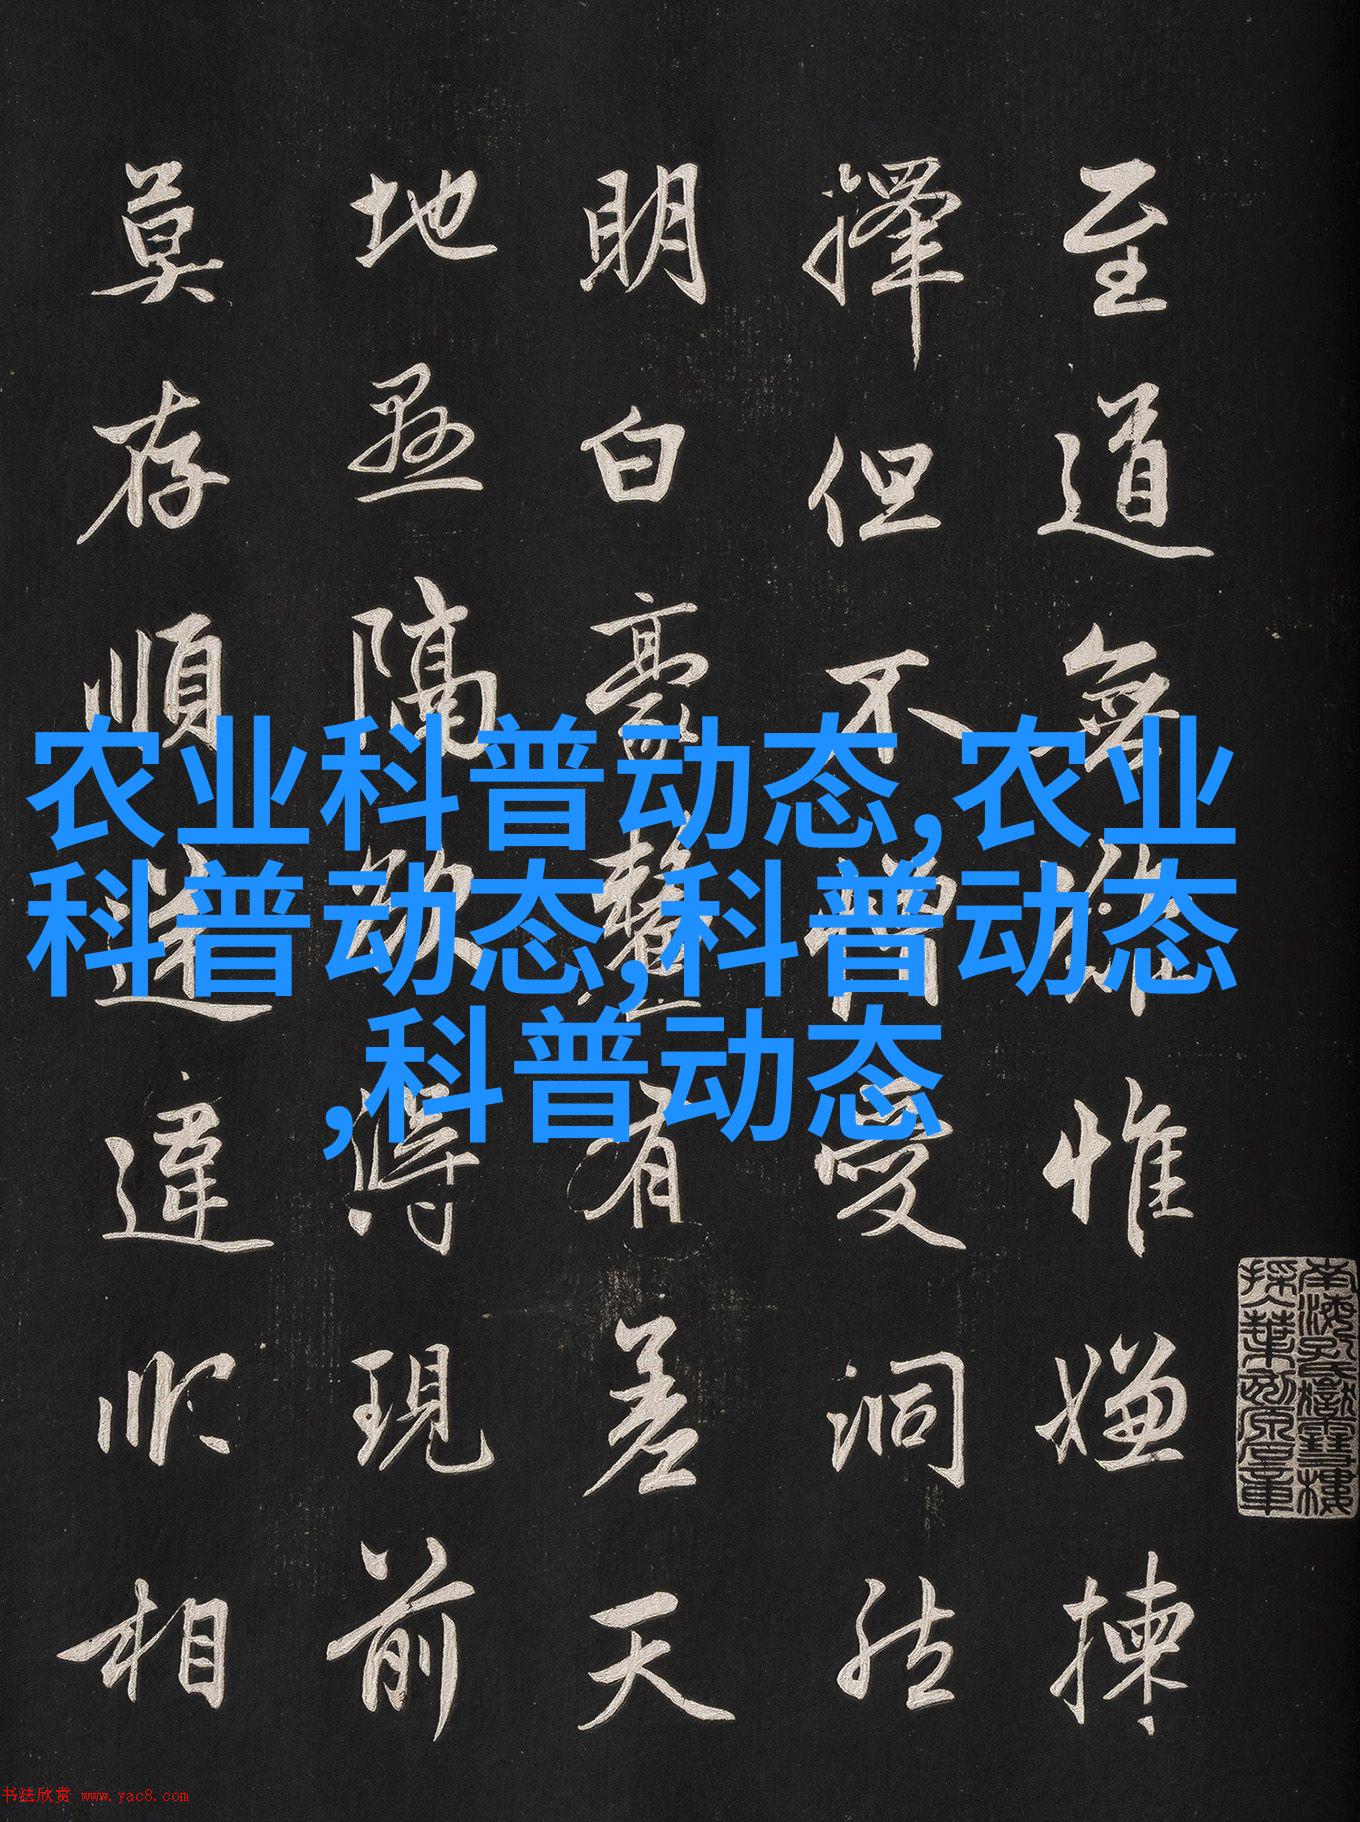 至道無難惟嫌揀
擇但不憎愛洞然
明白毫釐有差天
地懸隔欲得現前
莫存順逆違順相
农业科普动态,农业
科普动态,科普动态
,科普动态
书法欣赏 www.yac8.com